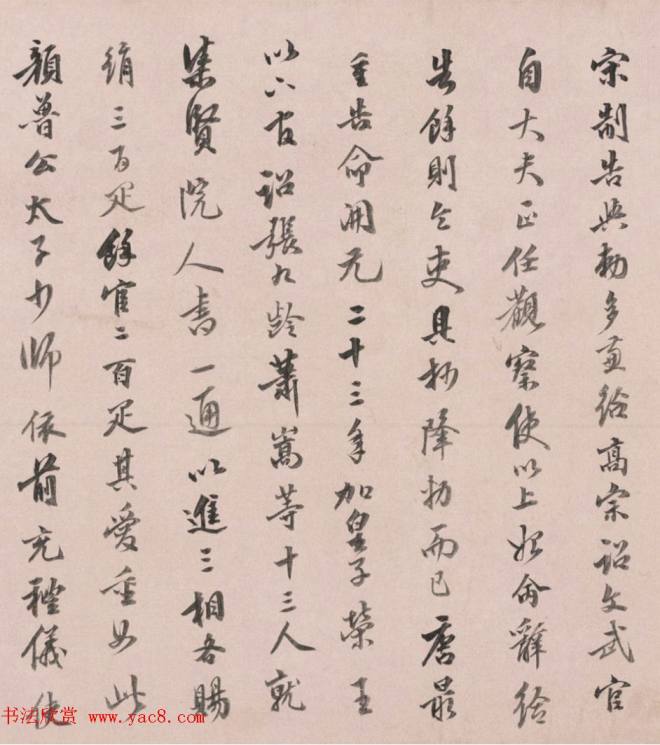 宋制告與勅多兼給高宗詔文武官
自大夫正任觀察使以上始命辭給
告餘則令吏具抄降勅而已唐最
重告命開元二十三年加皇子榮王
以下官詔張九齡蕭嵩等十三人就
集賢院人書一通以進三相各賜
絹三百疋餘官二百疋其愛重如此
顏魯公太子少師依前充禮儀使
书法欣赏 www.yac8.com